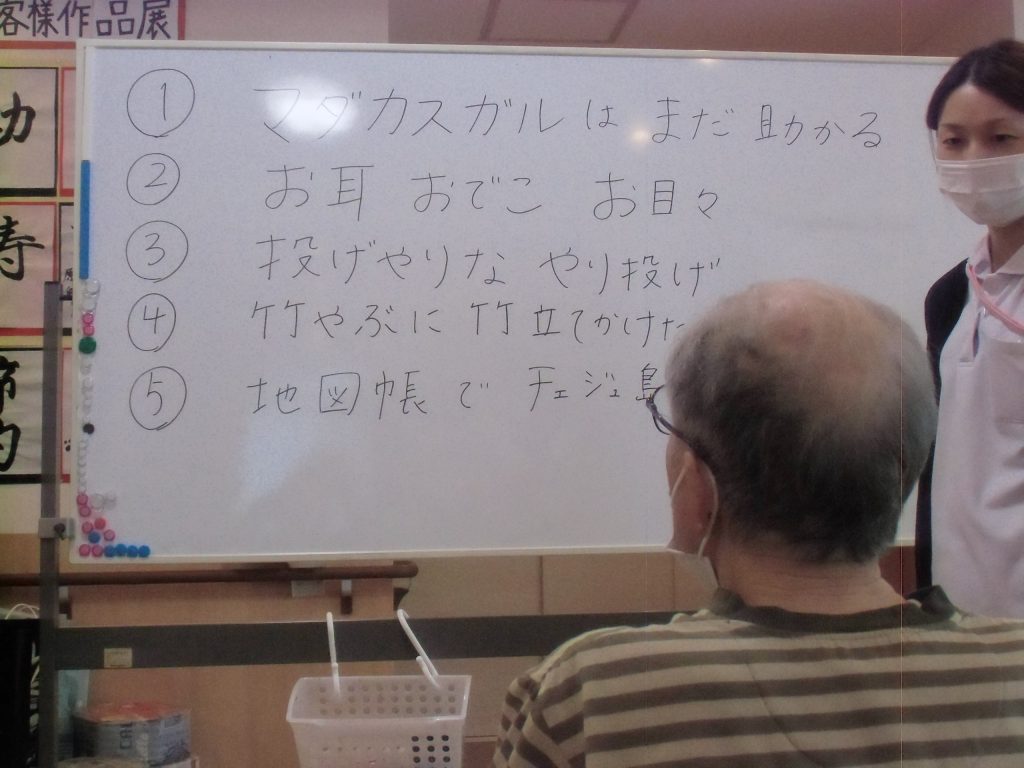 客様作品展
① マダカスガルは まだ 助かる
② お耳 おでこ お目々
③ 投げやりな やり投げ
④ 竹やぶに 竹立てかけた
⑤ 地図帳で チェジェ島
寿